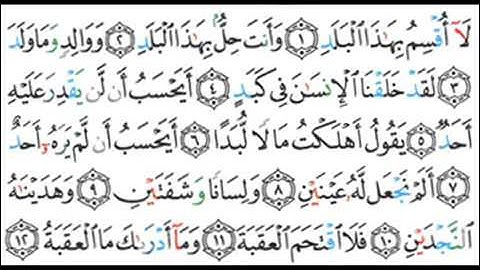 لَآ أُقْسِمُ بِهَٰذَا ٱلْبَلَدِ ١ وَأَنتَ حِلٌّۢ بِهَٰذَا ٱلْبَلَدِ ٢ وَوَالِدٍ وَمَا وَلَدَ
٣ لَقَدْ خَلَقْنَا ٱلْإِنسَٰنَ فِى كَبَدٍ ٤ أَيَحْسَبُ أَن لَّن يَقْدِرَ عَلَيْهِ
أَحَدٌ ٥ يَقُولُ أَهْلَكْتُ مَالًا لُّبَدًا ٦ أَيَحْسَبُ أَن لَّمْ يَرَهُۥٓ أَحَدٌ
٧ أَلَمْ نَجْعَل لَّهُۥ عَيْنَيْنِ ٨ وَلِسَانًا وَشَفَتَيْنِ ٩ وَهَدَيْنَٰهُ
ٱلنَّجْدَيْنِ ١٠ فَلَا ٱقْتَحَمَ ٱلْعَقَبَةَ ١١ وَمَآ أَدْرَىٰكَ مَا ٱلْعَقَبَةُ ١٢